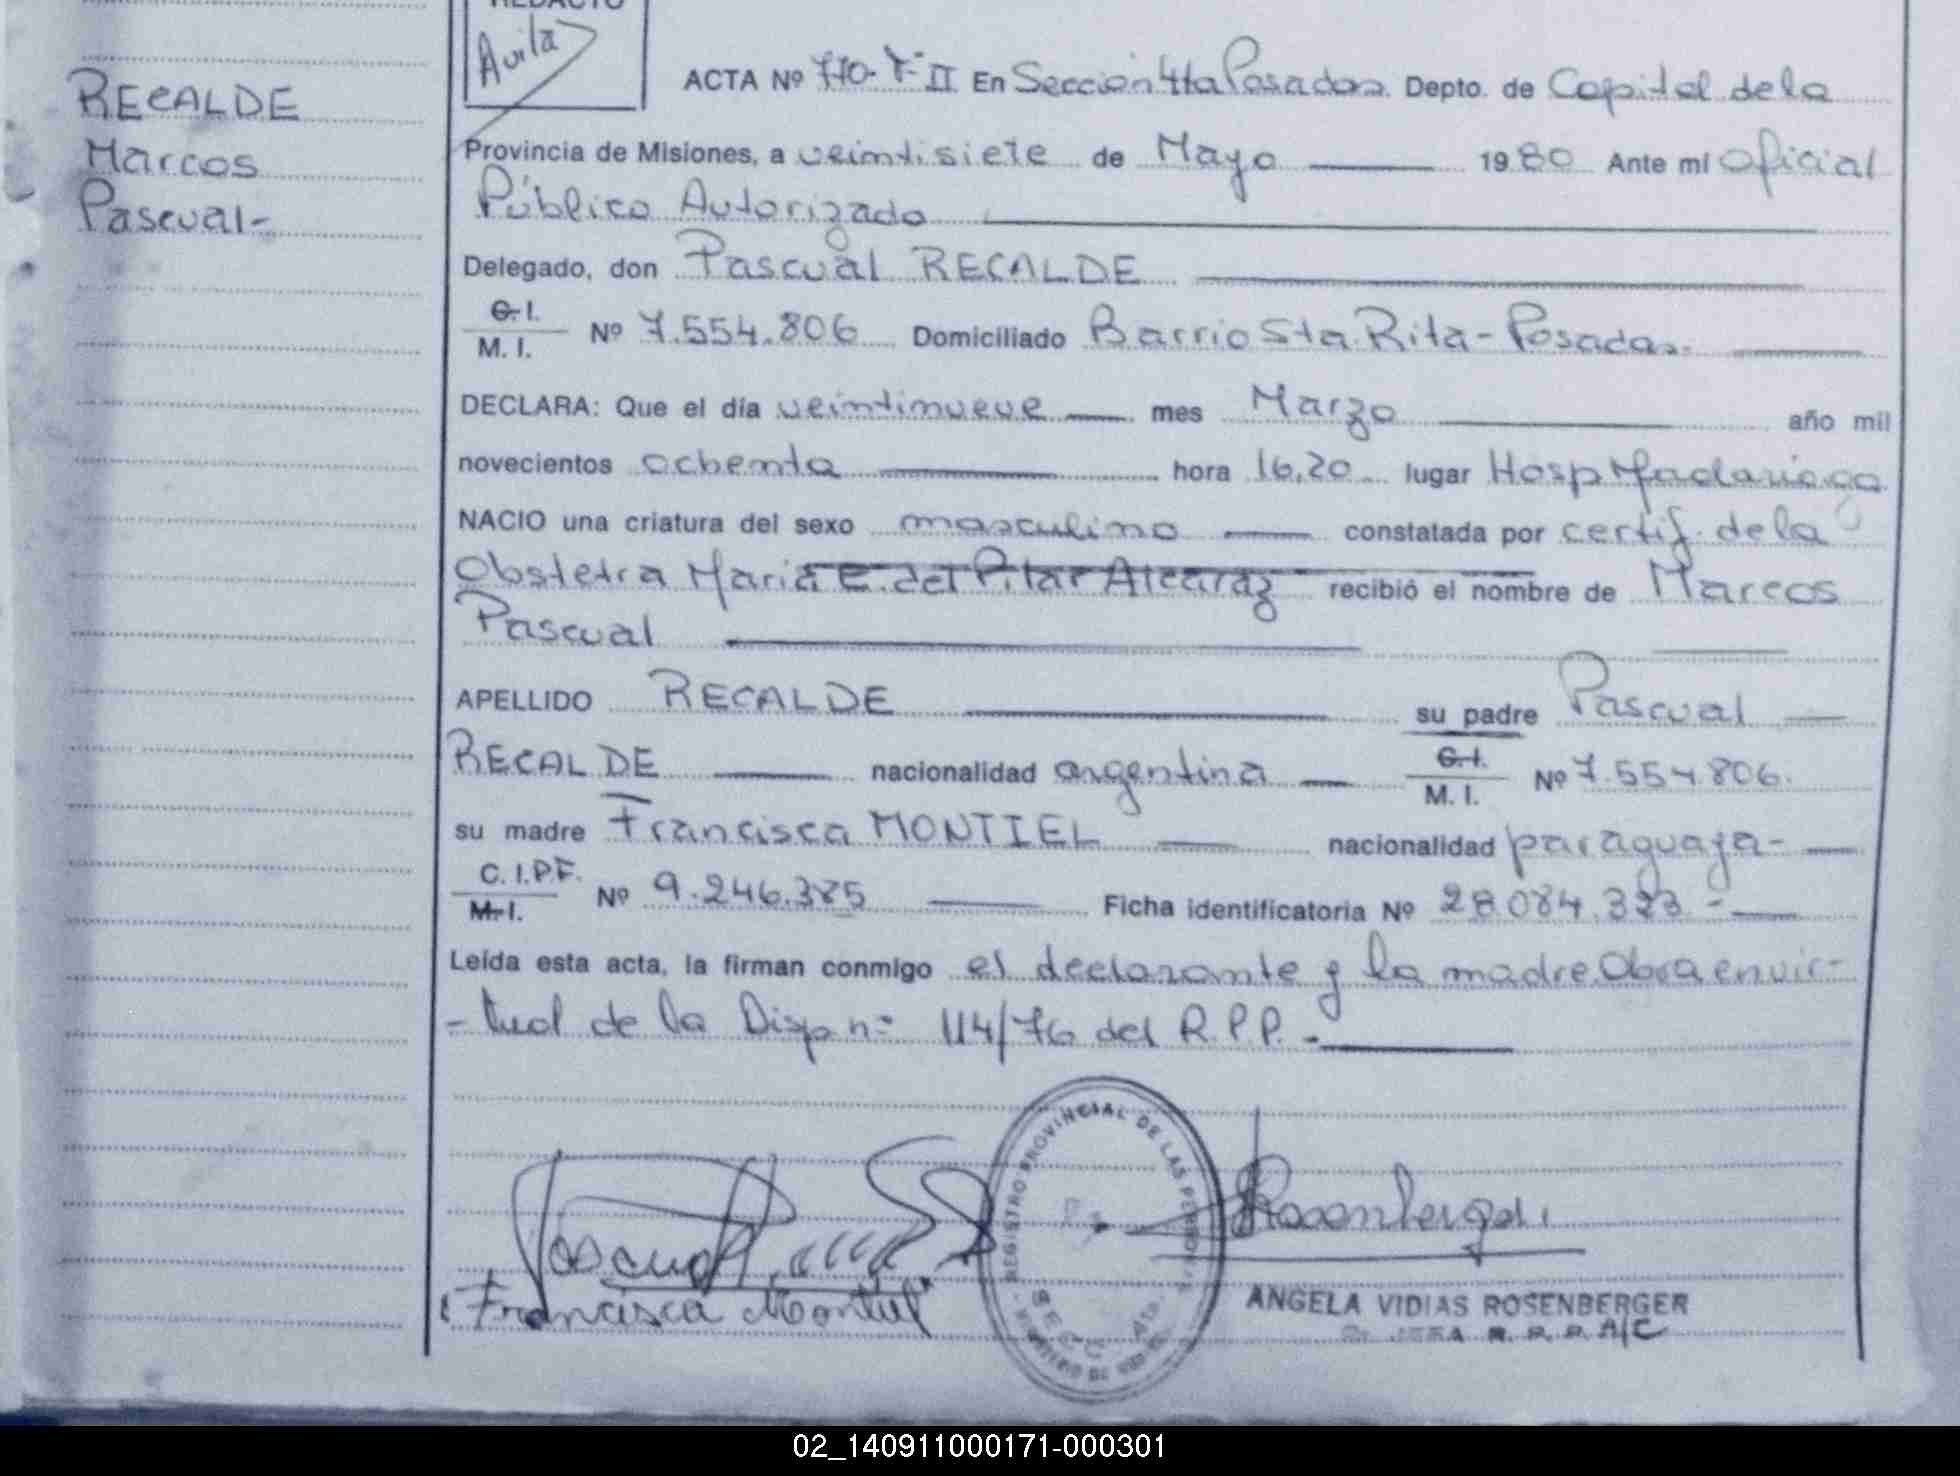 REDACTO
Avila
RECALDE
Marcos
Pascual-
ACTA Nº 770-T-II En Sección 4ta Posadas. Depto. de Capital de la
Provincia de Misiones, a veintisiete de Mayo 1980 Ante mí Oficial
Público Autorizado
Delegado, don Pascual RECALDE
C. I.
M. I. Nº 7.554.806 Domiciliado Barrio Sta. Rita - Posadas.
DECLARA: Que el día veintinueve mes Marzo año mil
novecientos ochenta hora 16,20 lugar Hosp Madariaga
NACIO una criatura del sexo masculino constatada por certif. de la
Obstetra Maria E. del Pilar Alcaraz recibió el nombre de Marcos
Pascual
APELLIDO RECALDE su padre Pascual
RECALDE nacionalidad argentina C. I.
M. I. Nº 7.554.806.
su madre Francisca MONTIEL nacionalidad paraguaya-
C. I. P.F.
M. I. Nº 9.246.385 Ficha identificatoria Nº 28.084.323 -
Leída esta acta, la firman conmigo el declarante y la madre. Obra en vir-
-tud de la Disp. nº 114/76 del R.P.P. -
REGISTRO PROVINCIAL DE LAS PERSONAS
Francisca Montiel
ANGELA VIDIAS ROSENBERGER
R. P. P. A/C
02_140911000171-000301